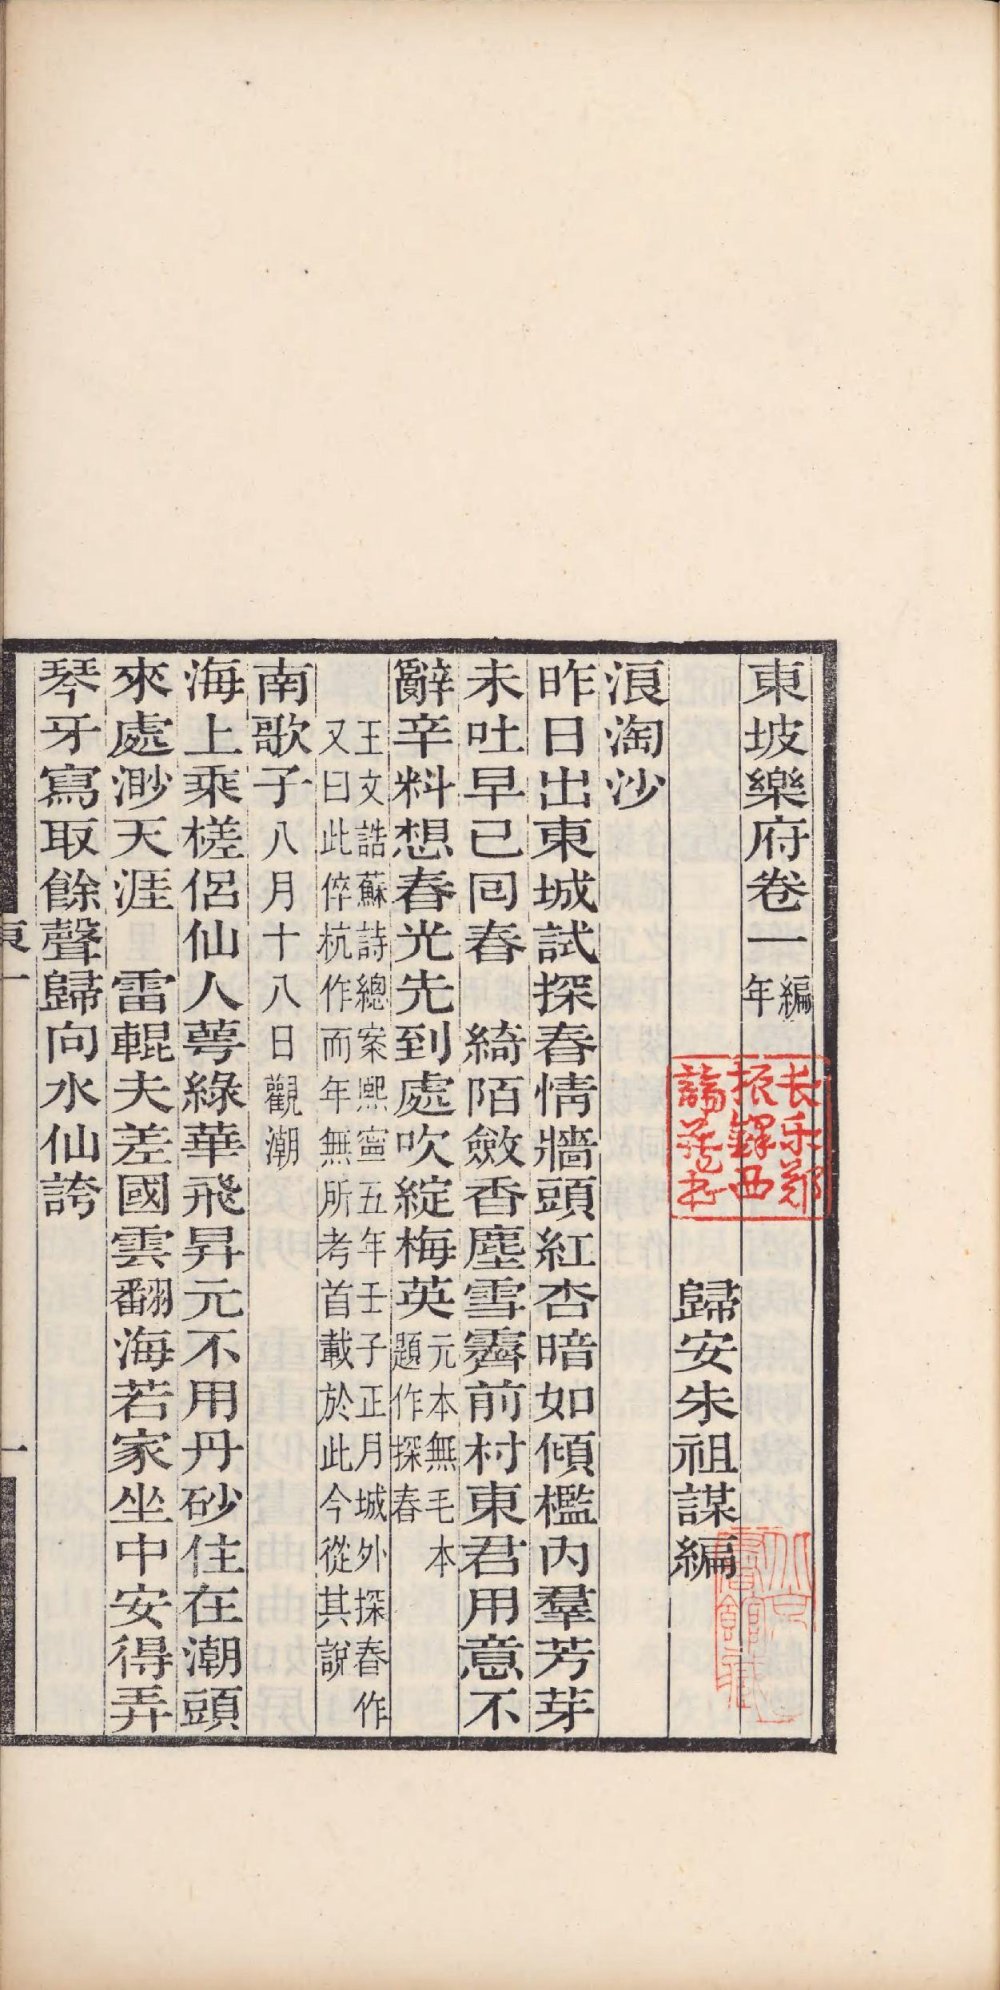 東坡樂府卷一 編年
歸安朱祖謀編
浪淘沙
昨日出東城試探春情牆頭紅杏暗如傾檻內羣芳芽
未吐早已囘春　綺陌斂香塵雪霽前村東君用意不
辭辛料想春光先到處吹綻梅英 元本無毛本題作探春
王文誥蘇詩總案熙寧五年壬子正月城外探春作
又曰此倅杭作而年無所考首載於此今從其說
南歌子 八月十八日觀潮
海上乘槎侶仙人萼綠華飛昇元不用丹砂住在潮頭
來處渺天涯　雷輥夫差國雲翻海若家坐中安得弄
琴牙寫取餘聲歸向水仙誇
東一
一
長樂鄭
振鐸西
諦藏書
北京
圖書館藏